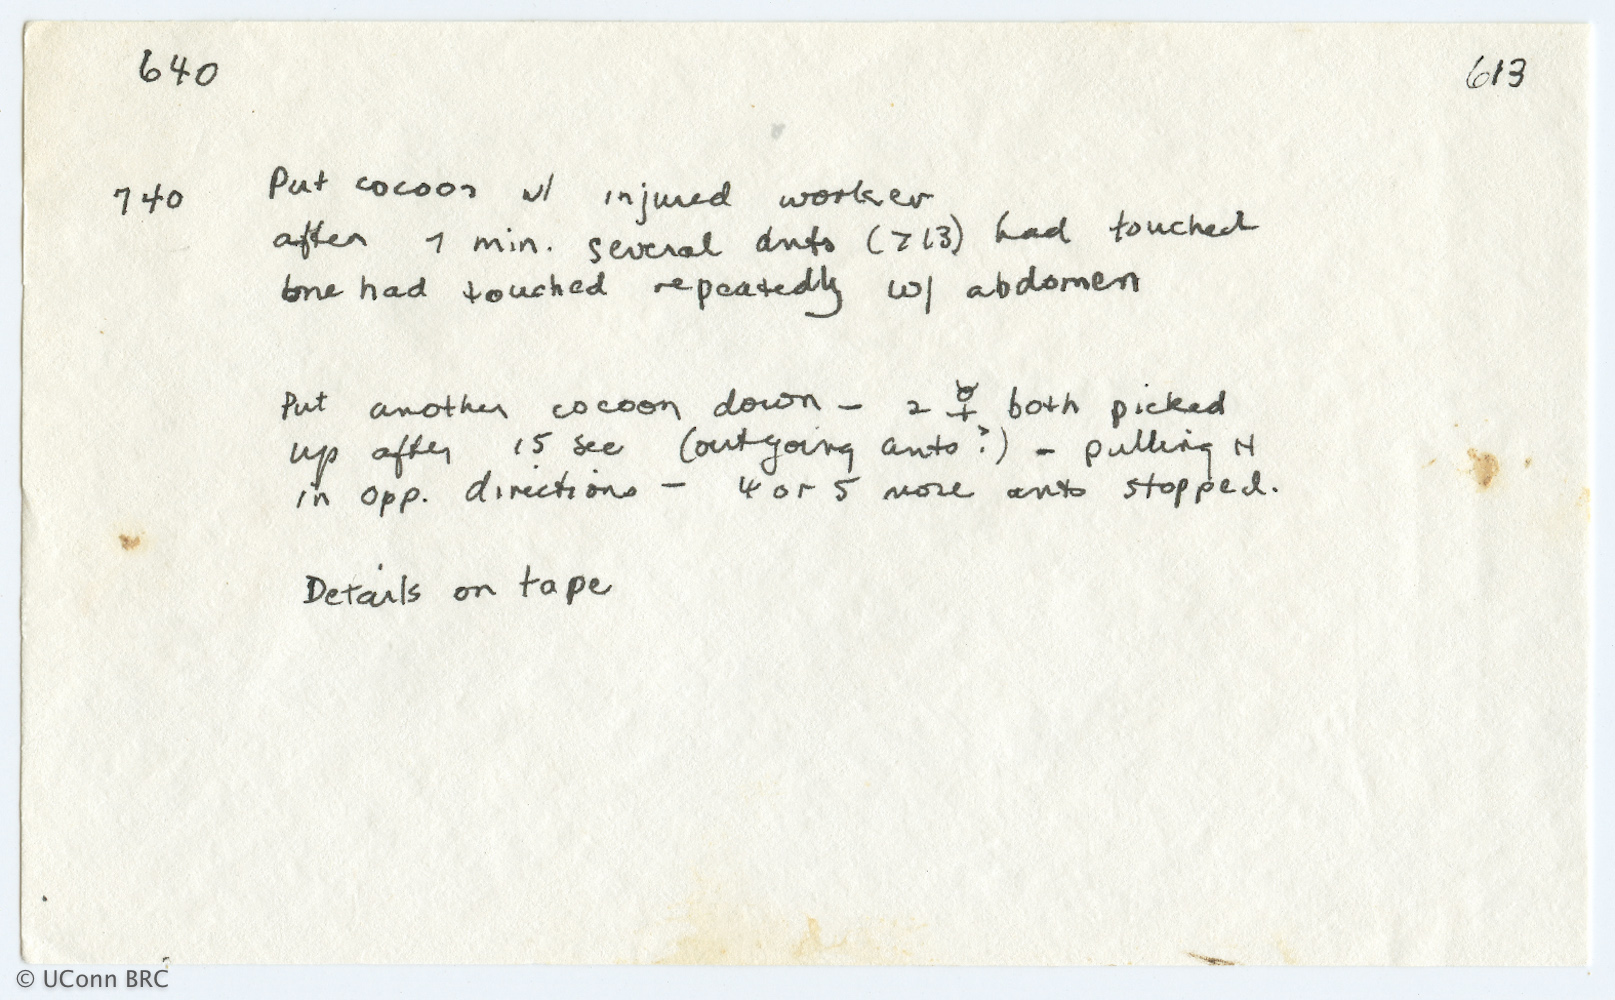 640 613
740 Put cocoon w/ injured worker
after 1 min. several ants (>13) had touched
one had touched repeatedly w/ abdomen
Put another cocoon down - 2 ☿ both picked
up after 15 sec (outgoing ants?) - pulling it
in opp. directions - 4 or 5 more ants stopped.
Details on tape
© UConn BRC